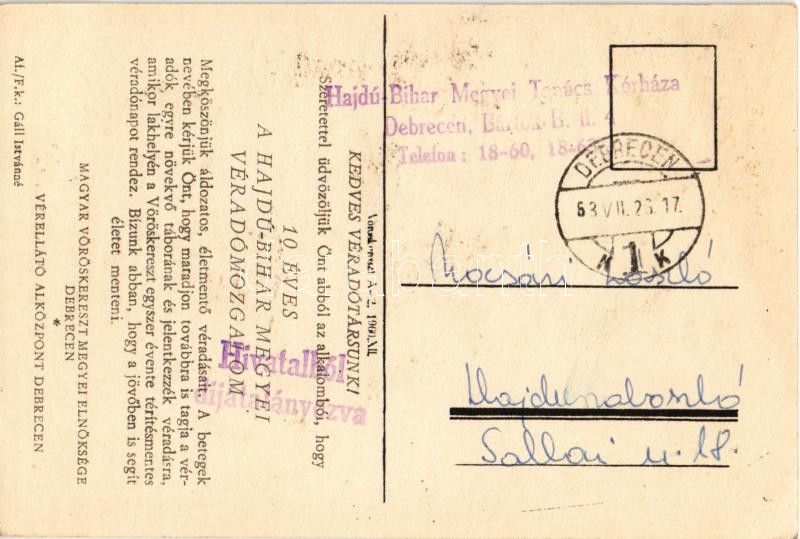 KEDVES VÉRADÓTÁRSUNK!
Szeretettel üdvözöljük Önt abból az alkalomból, hogy
10. ÉVES
A HAJDÚ-BIHAR MEGYEI
VÉRADÓMOZGALOM.
Megköszönjük áldozatos, életmentő véradásait. A betegek
nevében kérjük Önt, hogy maradjon továbbra is tagja a vér-
adók egyre növekvő táborának és jelentkezzék véradásra,
amikor lakhelyén a Vöröskereszt egyszer évente térítésmentes
véradónapot rendez. Bízunk abban, hogy a jövőben is segít
életet menteni.
MAGYAR VÖRÖSKERESZT MEGYEI ELNÖKSÉGE
DEBRECEN
*
VÉRELLÁTÓ ALKÖZPONT DEBRECEN
Af./F.k.: Gáll Istvánné
Hivatalból
díjátalányozva
Hajdú-Bihar Megyei Tanács Kórháza
Debrecen, Bartók B. u. 4.
Telefon: 18-60, 18-6
DEBRECEN
63 VII. 26. 17
1
K
Mocsári László
Hajdúszoboszló
Sallai u. 18.